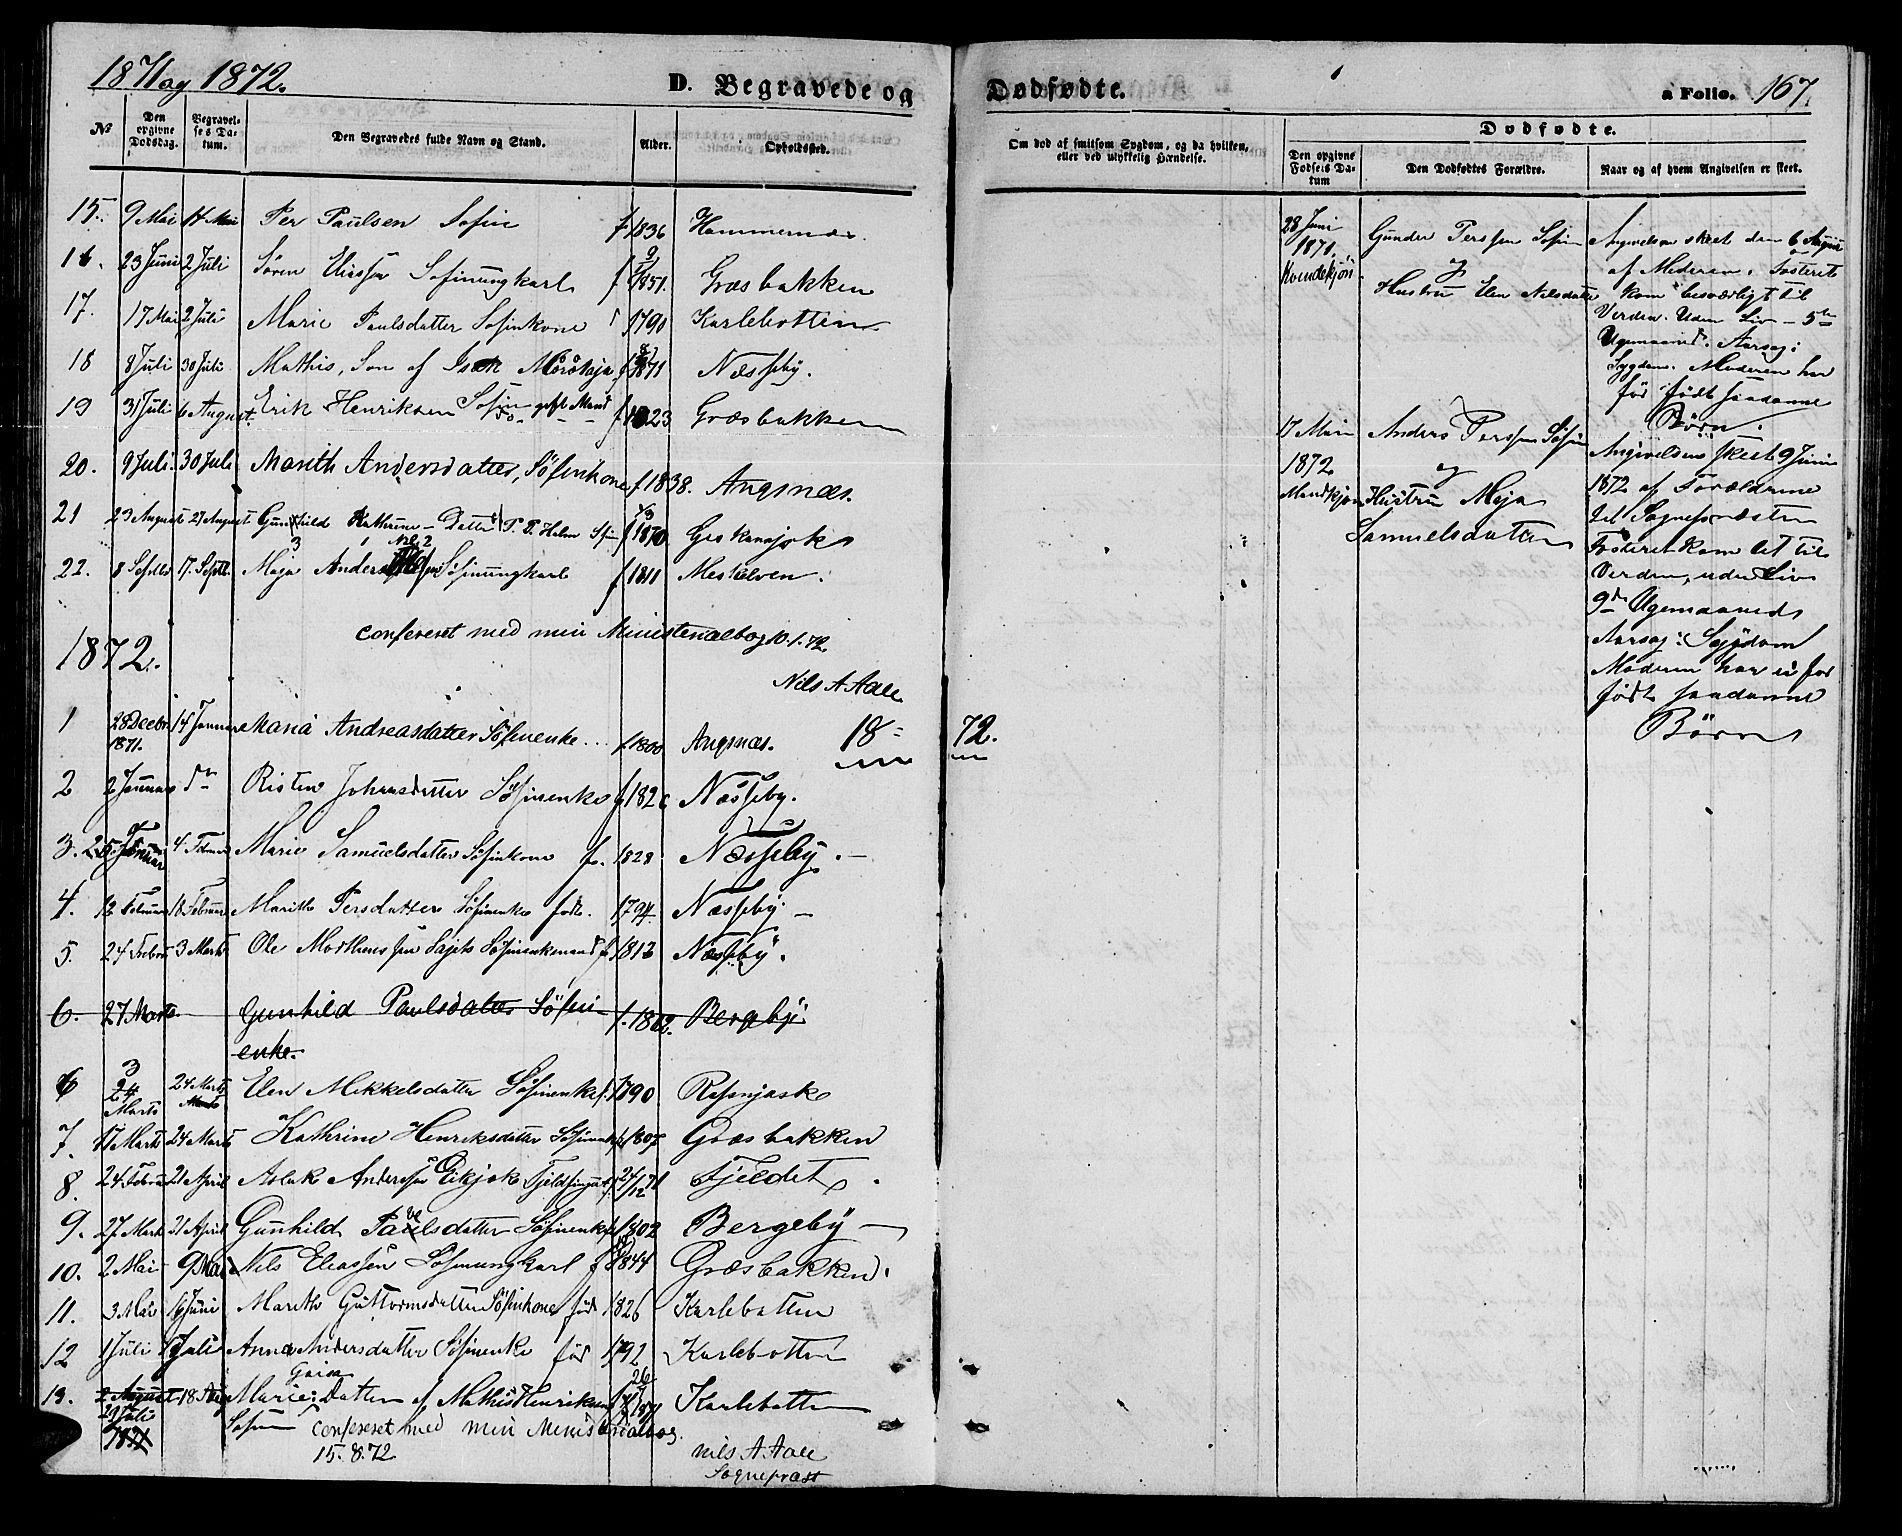 1871 og 1872.
D. Begravede og
Dødfødte.
a Folio. 167.
No
Den opgivne Dødsdag.
Begravelses Datum.
Den Begravedes fulde Navn og Stand.
Alder.
Opholdssted.
Om død af smitsom Sygdom, og da hvilken, eller ved ulykkelig Hændelse.
Dødfødte.
Den opgivne Fødsels Datum
Den Dødfødtes Forældre.
Naar og af hvem Angivelsen er skeet.
15. 9 Mai 14 Mai Per Paulsen Søfin f 1836 Hammernæs.
16. 23 Juni 2 Juli Søren Eliassen Søfinungkarl f 1851. Græsbakken
17. 17 Mai 2 Juli Marie Paulsdatter Søfinkone f 1790 Karlebotten
18 8 Juli 30 Juli Mathis, Søn af Isak f 1871 Næsseby.
19 31 Juli 6 August. Erik Henriksen Søfin gift Mand f 1823 Græsbakken
20. 9 Juli. 30 Juli Marith Andersdatter, Søfinkone f 1838. Angsnæs.
21 23 August 27 August Gunhild Kathrine - Datter P. P. Helm f 1870
22. 8 Septbr 17. Septb. Maja Anders Søfinungkarl f 1811 Meskelven.
confereret med min Ministerialbog 10.1.72.
1872.
Nils A Aall
1 28 Decbr 1871. 14 Januar Maria Andreasdatter Søfinenke f. 1800 Angsnæs. 18 72.
2 2 Januar do Risten Johnsdatter Søfinenke f 1826 Næsseby.
3. 25 Januar 4. Februar Marie Samuelsdatter Søfinkone f. 1828 Næsseby.
4. 12 Februar 18 Februar Marith Persdatter Søfinenke født 1794. Næsseby
5. 24 Februar 3 Marts Ole Morthenssen Søfinenkemand f 1813 Næsseby.
6. 27 Marts Gunhild Paulsdatter Søfin f. 1802. Bergeby
enke.
6 3 24 Marts 24 Marts Elen Mikkelsdatter Søfinenke f. 1790
7. 17 Marts 24 Marts Kathrine Henriksdatter Søfinenke f 1807 Græsbakken
8. 24 Februar 21 April Aslak Anderssen Eikjok f. 24/12 71 Fjeldet.
9. 27 Marts 21 April Gunhild Paulsdatter Søfinenke f 1802 Bergeby
10. 2 Mai 9 Mai Nils Eliassen Søfinungkarl f 1844 Græsbakken.
11. 3 Mai 16 Juni Marith Guttormsdatter Søfinkone født 1826 Karlebotten
12 1 Juli Juli Anna Andersdatter Søfinenke født 1792 Karlebotten
13. 2 August 18 Aug Marie: Datter af Mathis Henriksen Karlebotten
29 Juli Søfin confereret med min Ministerialbog.
15. 8. 72 Nils A. Aall
Sognepræst
28 Juni 1871. Kvindekjøn.
Gunder Perssen Søfin
og
Hustru Elen Nilsdatter
Angivelsen skeet den 6 August
af Moderen. Fosteret
kom besværligt til
Verden. Uden Liv - 5te
Ugemaaned. Aarsag:
Sygdom. Moderen har
før født saadanne
Børn.
17 Mai
1872
Mandkjøn
Anders Perssen Søfin
og
Hustru Maja
Samuelsdatter
Angivelsen skeet 9 Juni
1872 af Forældrene
til Sognepræsten
Fosteret kom let til
Verden, uden Liv
9de Ugemaaned.
Aarsag: Sygdom
Moderen har ei før
født saadanne
Børn